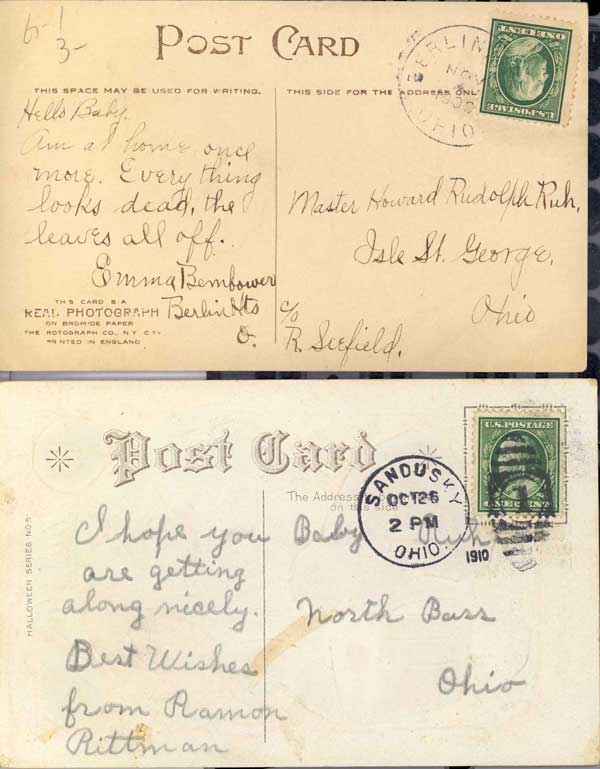 6-1
3-
POST CARD
THIS SPACE MAY BE USED FOR WRITING.
THIS SIDE FOR THE ADDRESS ONL
BERLIN
NOV
OHIO
U.S. POSTAGE
ONE CENT
Hello Baby.
Am at home once
more. Every thing
looks dead, the
leaves all off.
Emma Bembower
Berlin Hts
O.
THIS CARD IS A
REAL PHOTOGRAPH
ON BROMIDE PAPER
THE ROTOGRAPH CO., N.Y. CITY
PRINTED IN ENGLAND
Master Howard Rudolph Ruh,
Isle St. George,
Ohio
c/o
R. Seefield.
Post Card
The Address
on this side
HALLOWEEN SERIES NO 5
SANDUSKY
OCT 26
2 PM
OHIO.
1910
U.S. POSTAGE
ONE CENT
I hope you
are getting
along nicely.
Best Wishes
from Ramon
Rittman
Baby Ruh
North Bass
Ohio